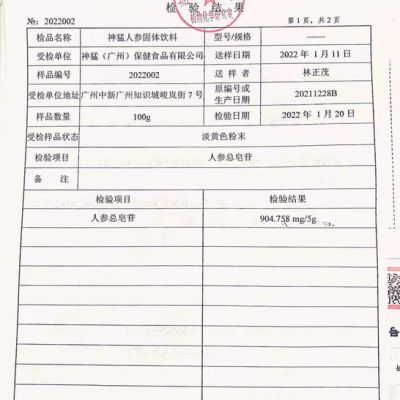 检 验 结 果
植物化学研究室
№: 2022002
第 1 页，共 2 页
检品名称 神猛人参固体饮料 型号/规格 ——
受检单位 神猛（广州）保健食品有限公司 送样日期 2022 年 1 月 11 日
样品编号 2022002 送 样 者 林正茂
受检单位地址 广州中新广州知识城峻岚街 7 号 原编号或生产日期 20211228B
样品数量 100g 检验日期 2022 年 1 月 20 日
受检样品状态 淡黄色粉末
检验项目 人参总皂苷
备 注
检验项目 检验结果
人参总皂苷 904.758 mg/5g
号